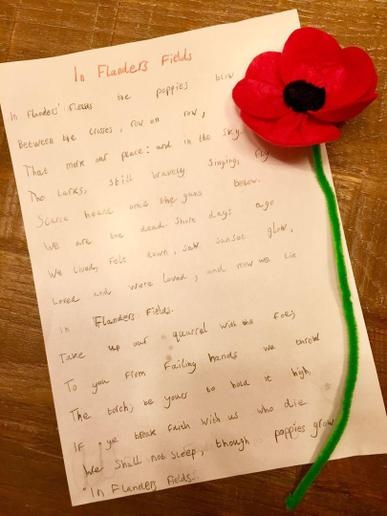 In Flanders Fields
In Flanders' Fields the poppies blow
Between the crosses, row on row,
That mark our peace: and in the sky
The larks, still bravely singing, fly
Scarce heard once the guns below.
We are the dead. Short days ago
We lived, felt dawn, saw sunset glow,
Loved and were loved, and now we lie
in Flanders Fields.
Take up our quarrel with the foe;
To you from failing hands we throw
The torch; be yours to hold it high
If ye break faith with us who die
We shall not sleep, though poppies grow
In Flanders Fields.